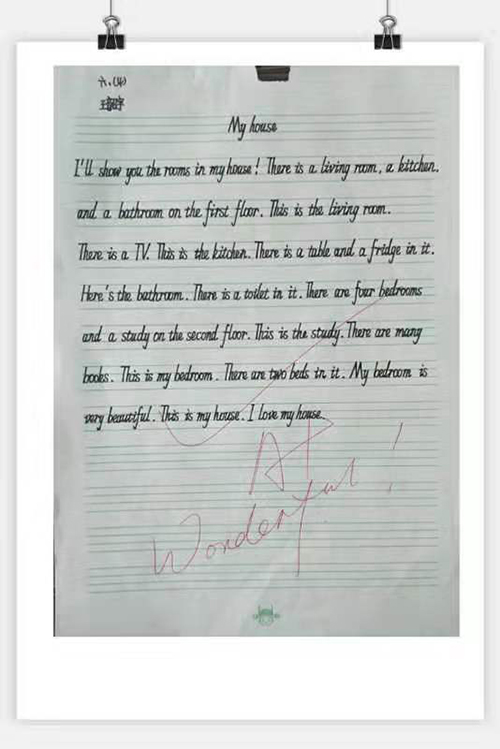 六.(4)
My house
I'll show you the rooms in my house! There is a living room, a kitchen.
and a bathroom on the first floor. This is the living room.
There is a TV. This is the kitchen. There is a table and a fridge in it.
Here's the bathroom. There is a toilet in it. There are four bedrooms
and a study on the second floor. This is the study. There are many
books. This is my bedroom. There are two beds in it. My bedroom is
very beautiful. This is my house. I love my house.
A+
Wonderful!